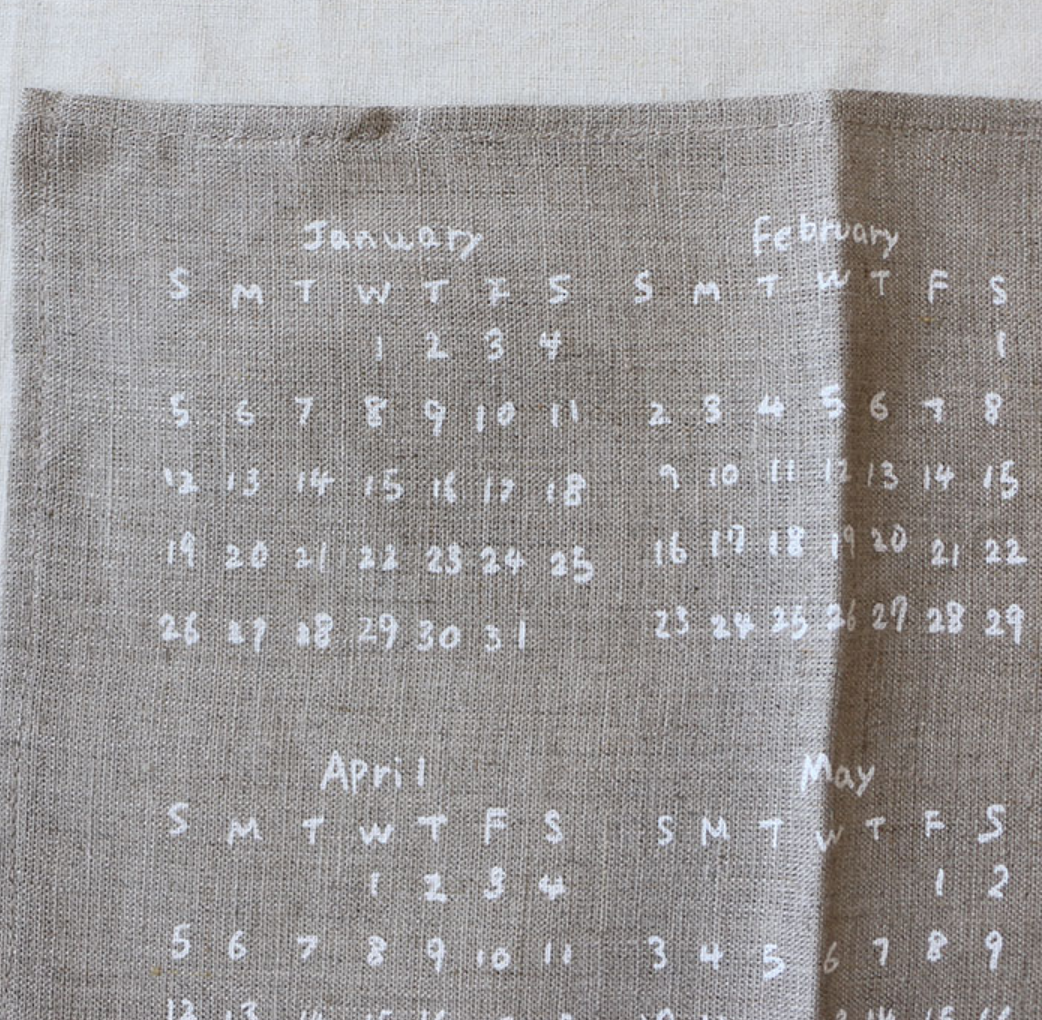 January
S M T W T F S
1 2 3 4
5 6 7 8 9 10 11
12 13 14 15 16 17 18
19 20 21 22 23 24 25
26 27 28 29 30 31
February
S M T W T F S
1
2 3 4 5 6 7 8
9 10 11 12 13 14 15
16 17 18 19 20 21 22
23 24 25 26 27 28 29
April
S M T W T F S
1 2 3 4
5 6 7 8 9 10 11
12 13
May
S M T W T F S
1 2
3 4 5 6 7 8 9